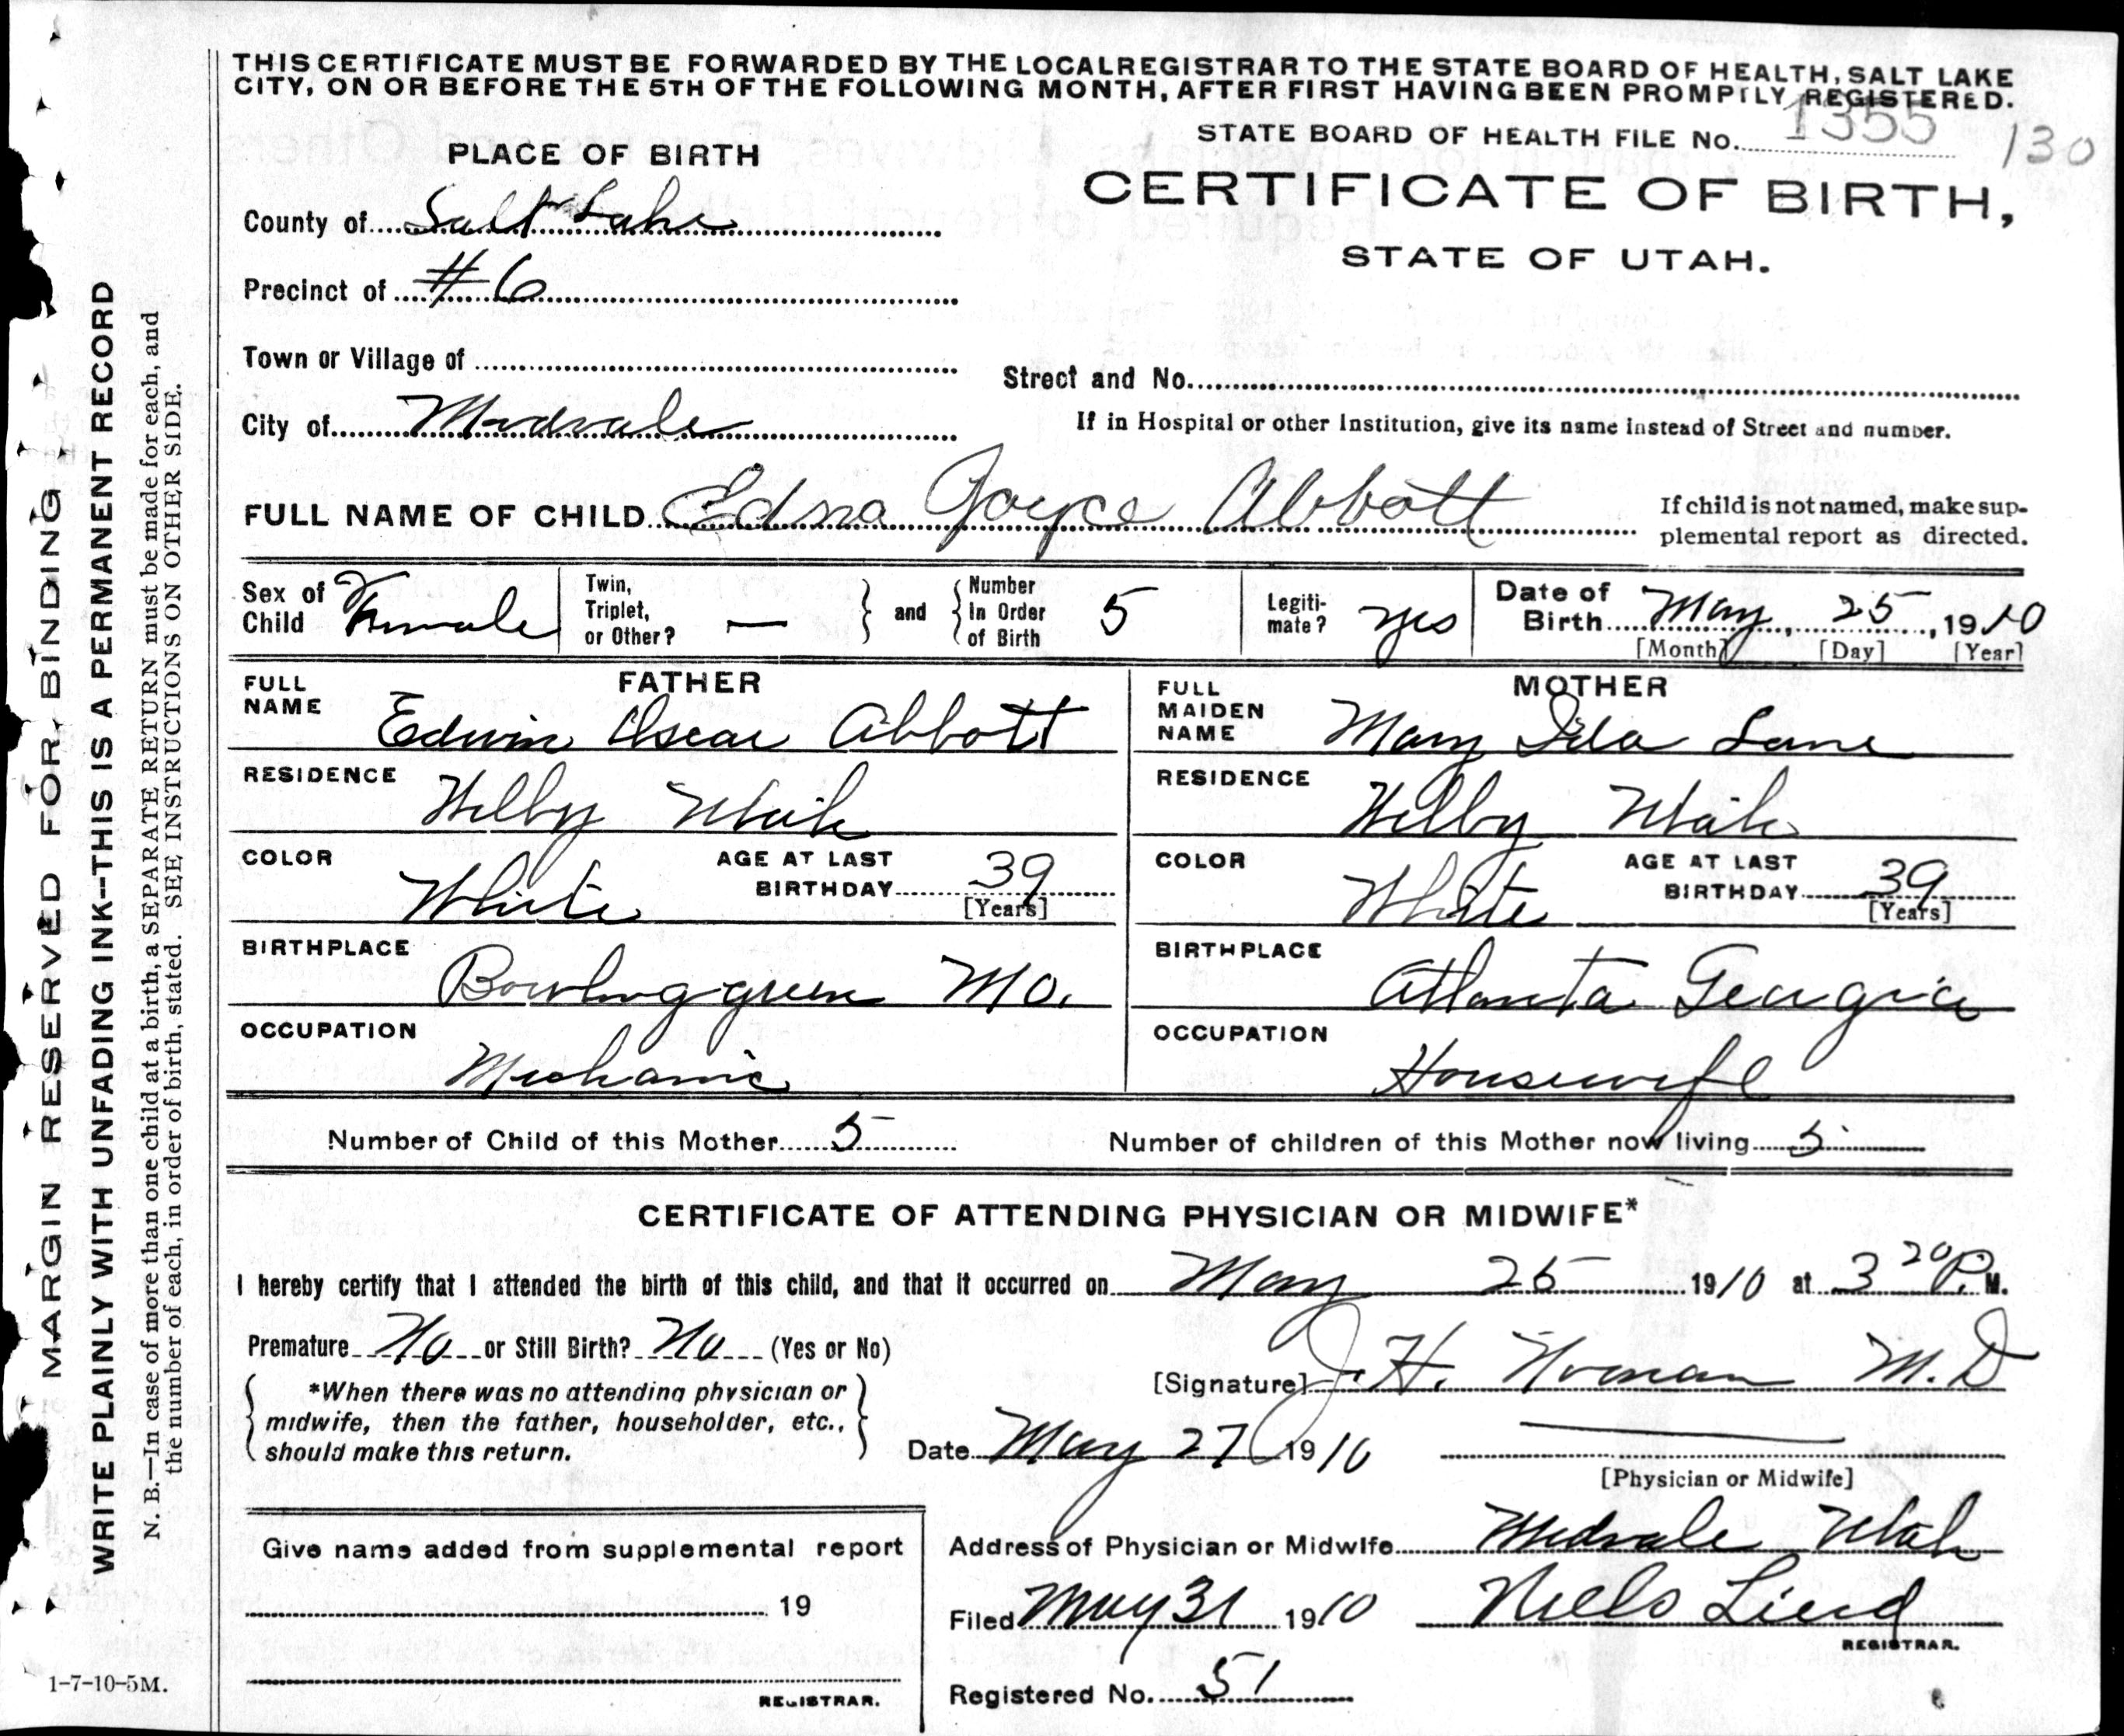 THIS CERTIFICATE MUST BE FORWARDED BY THE LOCAL REGISTRAR TO THE STATE BOARD OF HEALTH, SALT LAKE
CITY, ON OR BEFORE THE 5TH OF THE FOLLOWING MONTH, AFTER FIRST HAVING BEEN PROMPTLY REGISTERED.
STATE BOARD OF HEALTH FILE No. 1355 130
PLACE OF BIRTH
CERTIFICATE OF BIRTH,
STATE OF UTAH.
County of Salt Lake
Precinct of #6
Town or Village of
Street and No.
City of Midvale
If in Hospital or other Institution, give its name instead of Street and number.
FULL NAME OF CHILD Edna Joyce Abbott
If child is not named, make sup-
plemental report as directed.
Sex of Child Female
Twin, Triplet, or Other? —
and
Number In Order of Birth 5
Legiti-mate? yes
Date of Birth May, 25, 1910
[Month] [Day] [Year]
FATHER
FULL NAME Edwin Oscar Abbott
RESIDENCE Welby Utah
COLOR White
AGE AT LAST BIRTHDAY 39
[Years]
BIRTHPLACE Bowling green Mo.
OCCUPATION Mechanic
MOTHER
FULL MAIDEN NAME Mary Ida Lane
RESIDENCE Welby Utah
COLOR White
AGE AT LAST BIRTHDAY 39
[Years]
BIRTHPLACE Atlanta Georgia
OCCUPATION Housewife
Number of Child of this Mother 5
Number of children of this Mother now living 5
CERTIFICATE OF ATTENDING PHYSICIAN OR MIDWIFE*
I hereby certify that I attended the birth of this child, and that it occurred on May 25 1910 at 3 20 P. M.
Premature No or Still Birth? No (Yes or No)
*When there was no attending physician or
midwife, then the father, householder, etc.,
should make this return.
[Signature] J. H. Norman M.D
Date May 27 1910
[Physician or Midwife]
Give name added from supplemental report
19
REGISTRAR.
Address of Physician or Midwife Midvale Utah
Filed May 31 1910 Niels Lind
REGISTRAR.
Registered No. 51
MARGIN RESERVED FOR BINDING
WRITE PLAINLY WITH UNFADING INK--THIS IS A PERMANENT RECORD
N. B.—In case of more than one child at a birth, a SEPARATE RETURN must be made for each, and
the number of each, in order of birth, stated. SEE INSTRUCTIONS ON OTHER SIDE.
1-7-10-5M.